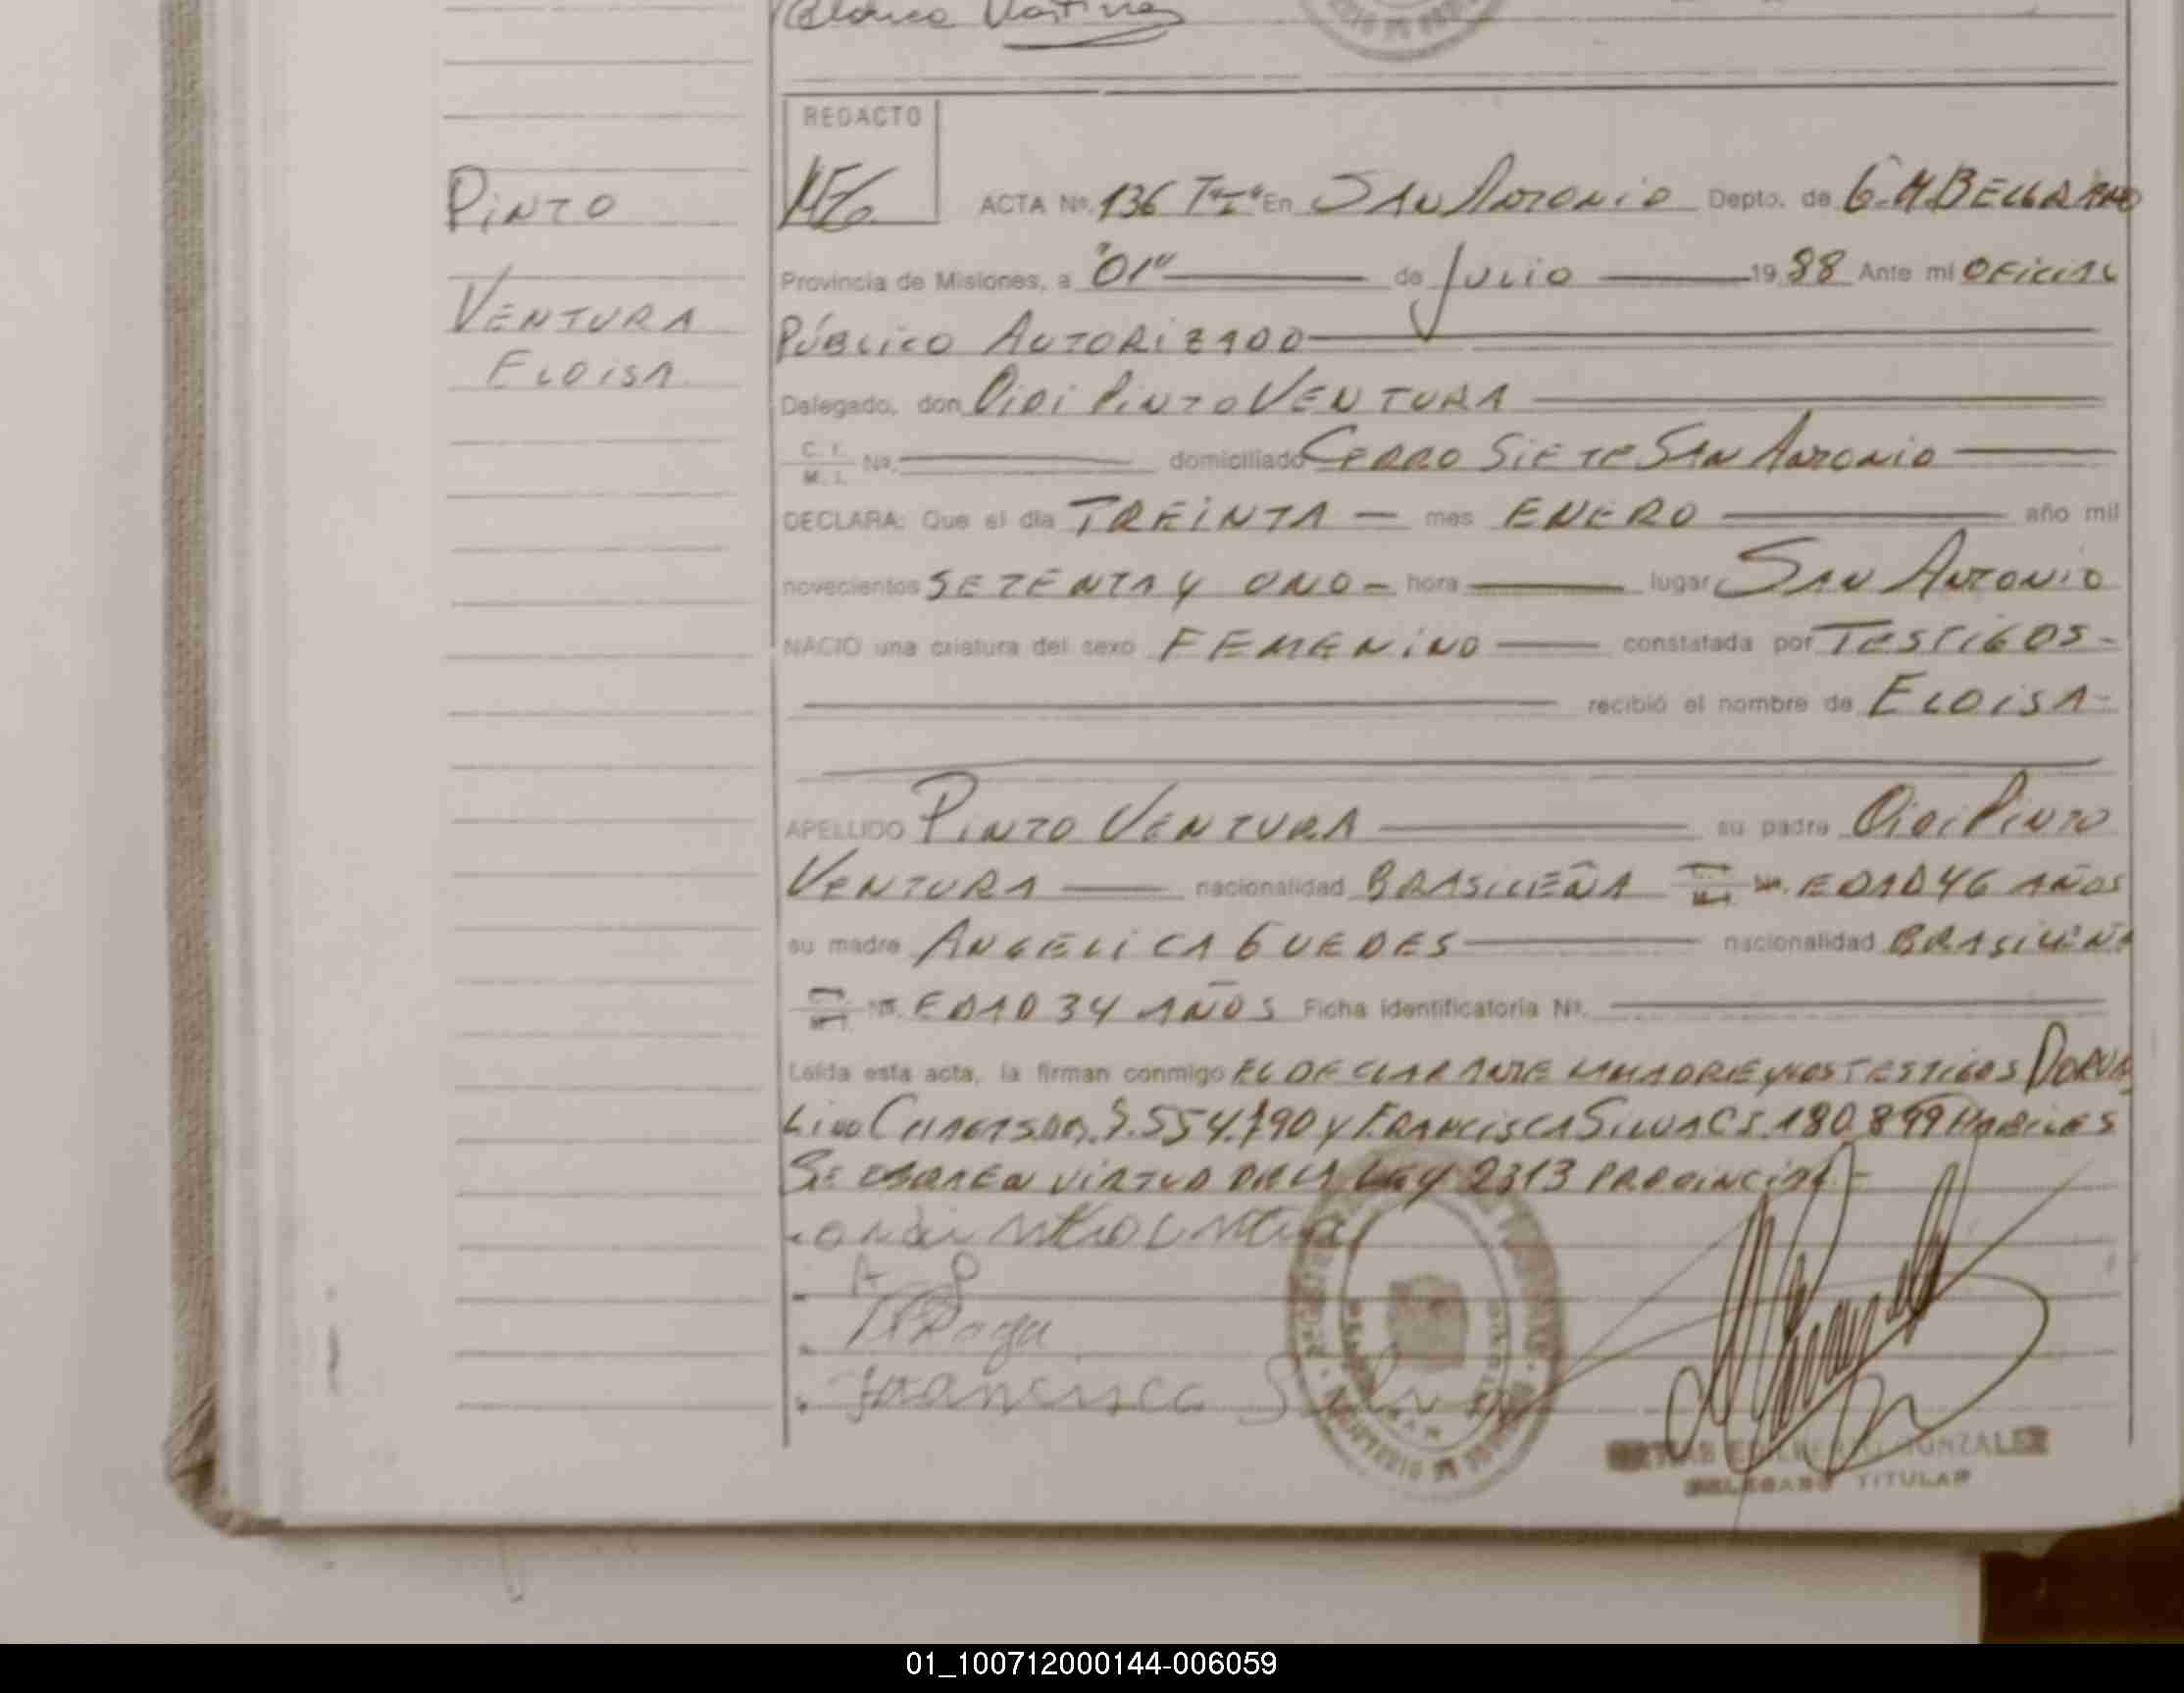 Blanca Martinez
REDACTO
ACTA Nº 136 Tº I º En SAN ANTONIO Depto. de G.M BELGRANO
PINTO
Provincia de Misiones, a "01" de JULIO 1988 Ante mi OFICIAL
VENTURA
PÚBLICO AUTORIZADO
ELOISA
Delegado, don DIDI PINTO VENTURA
C. I. M. I. Nº. domiciliado CERRO SIETE SAN ANTONIO
DECLARA: Que el día TREINTA mes ENERO año mil
novecientos SETENTA Y UNO hora lugar SAN ANTONIO
NACIO una criatura del sexo FEMENINO constatada por TESTIGOS-
recibió el nombre de ELOISA-
APELLIDO PINTO VENTURA su padre DIDI PINTO
VENTURA nacionalidad BRASILEÑA EDAD 46 AÑOS
su madre ANGELICA GUEDES nacionalidad BRASILEÑA
EDAD 34 AÑOS Ficha identificatoria Nº.
Leída esta acta, la firman conmigo EL DECLARANTE LA MADRE Y LOS TESTIGOS DORVA
LINO Y FRANCISCA SILVA C.I. 180.899 HABILES
SE LABRA EN VIRTUD DE LA LEY 2313 PROVINCIAL-
A P
Francisca S
GONZALEZ
DELEGADO TITULAR
01_100712000144-006059